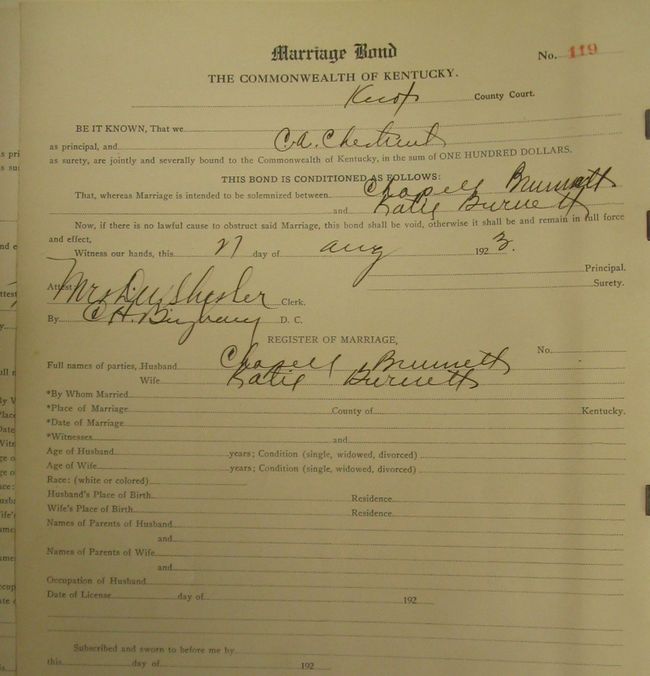 Marriage Bond
No. 119
THE COMMONWEALTH OF KENTUCKY.
Knox County Court.
BE IT KNOWN, That we
as principal, and C.A. Chestnut
as surety, are jointly and severally bound to the Commonwealth of Kentucky, in the sum of ONE HUNDRED DOLLARS.
THIS BOND IS CONDITIONED AS FOLLOWS:
That, whereas Marriage is intended to be solemnized between Chapell Brunett
and Katie Burnett
Now, if there is no lawful cause to obstruct said Marriage, this bond shall be void, otherwise it shall be and remain in full force
and effect,
Witness our hands, this day of Aug 1923.
Principal.
Surety.
Attest Mrs Clerk.
By C H Bingham D. C.
REGISTER OF MARRIAGE,
No.
Full names of parties, Husband Chapell Brunett
Wife Katie Burnett
*By Whom Married
*Place of Marriage County of Kentucky.
*Date of Marriage
*Witnesses and
Age of Husband years; Condition (single, widowed, divorced)
Age of Wife years; Condition (single, widowed, divorced)
Race: (white or colored)
Husband's Place of Birth Residence
Wife's Place of Birth Residence
Names of Parents of Husband
and
Names of Parents of Wife
and
Occupation of Husband
Date of License day of 192
Subscribed and sworn to before me by
this day of 192